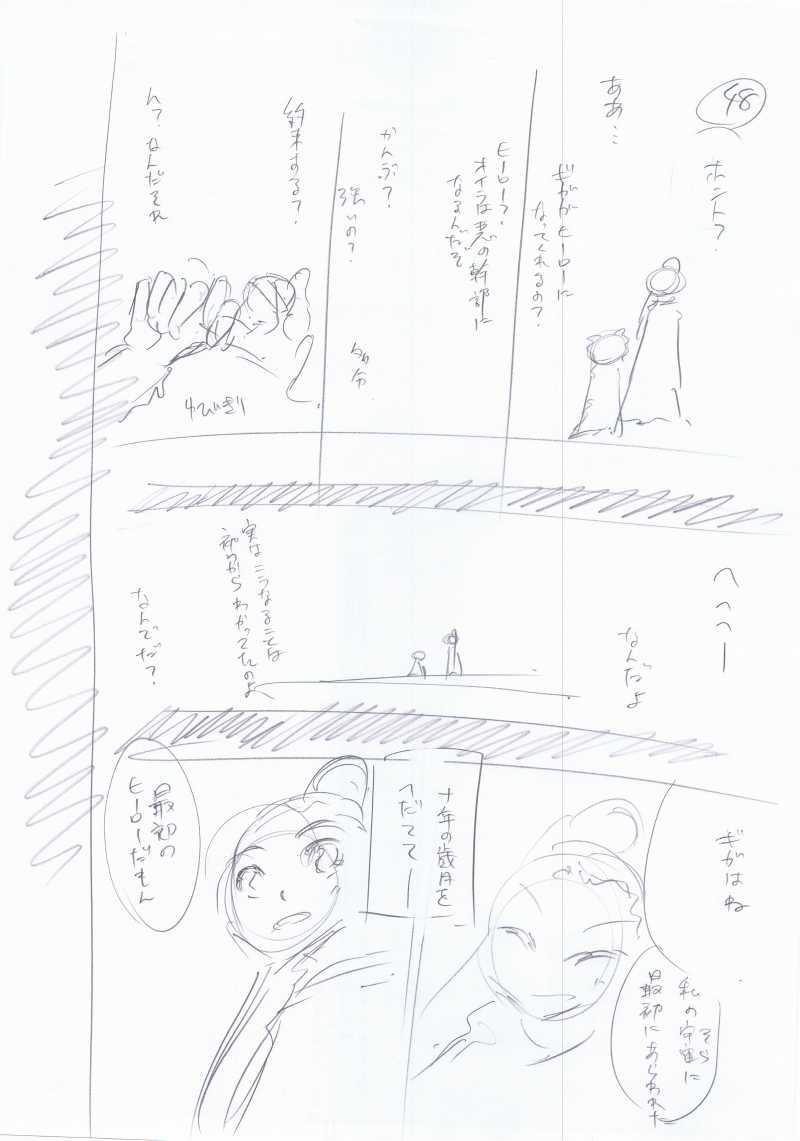 48
ホント？
ああ…
ギガがヒーローに
なってくれるの？
ヒーロー？
オイラは悪の幹部に
なるんだぞ
かんぶ？
強いの？
多分
約束する？
ん？なんだそれ
ゆびきり
へへへー
なんだよ
実はこうなることは
初めからわかってたのよ
なんでだ？
ギガはね
私の宇宙に
そら
最初にあらわれた
十年の歳月を
へだてて―
最初の
ヒーローだもん